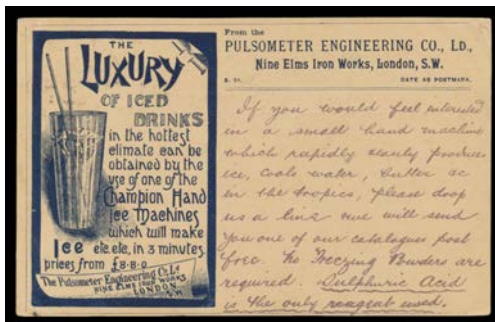 THE
LUXURY
OF ICED
DRINKS
in the hottest
climate can be
obtained by the
use of one of the
Champion Hand
Ice Machines
which will make
Ice etc. etc, in 3 minutes.
prices from £8-8-0
The Pulsometer Engineering Co. Ld
NINE ELMS IRON WORKS
LONDON
S.W
From the
PULSOMETER ENGINEERING CO., LD.,
Nine Elms Iron Works, London, S.W.
DATE AS POSTMARK.
If you would feel interested
in a small hand machine
which rapidly produces
ice, cools water, butter &c
in the tropics, please drop
us a line & we will send
you one of our catalogues post
free. No Freezing Powders are
required. Sulphuric Acid
is the only reagent used.